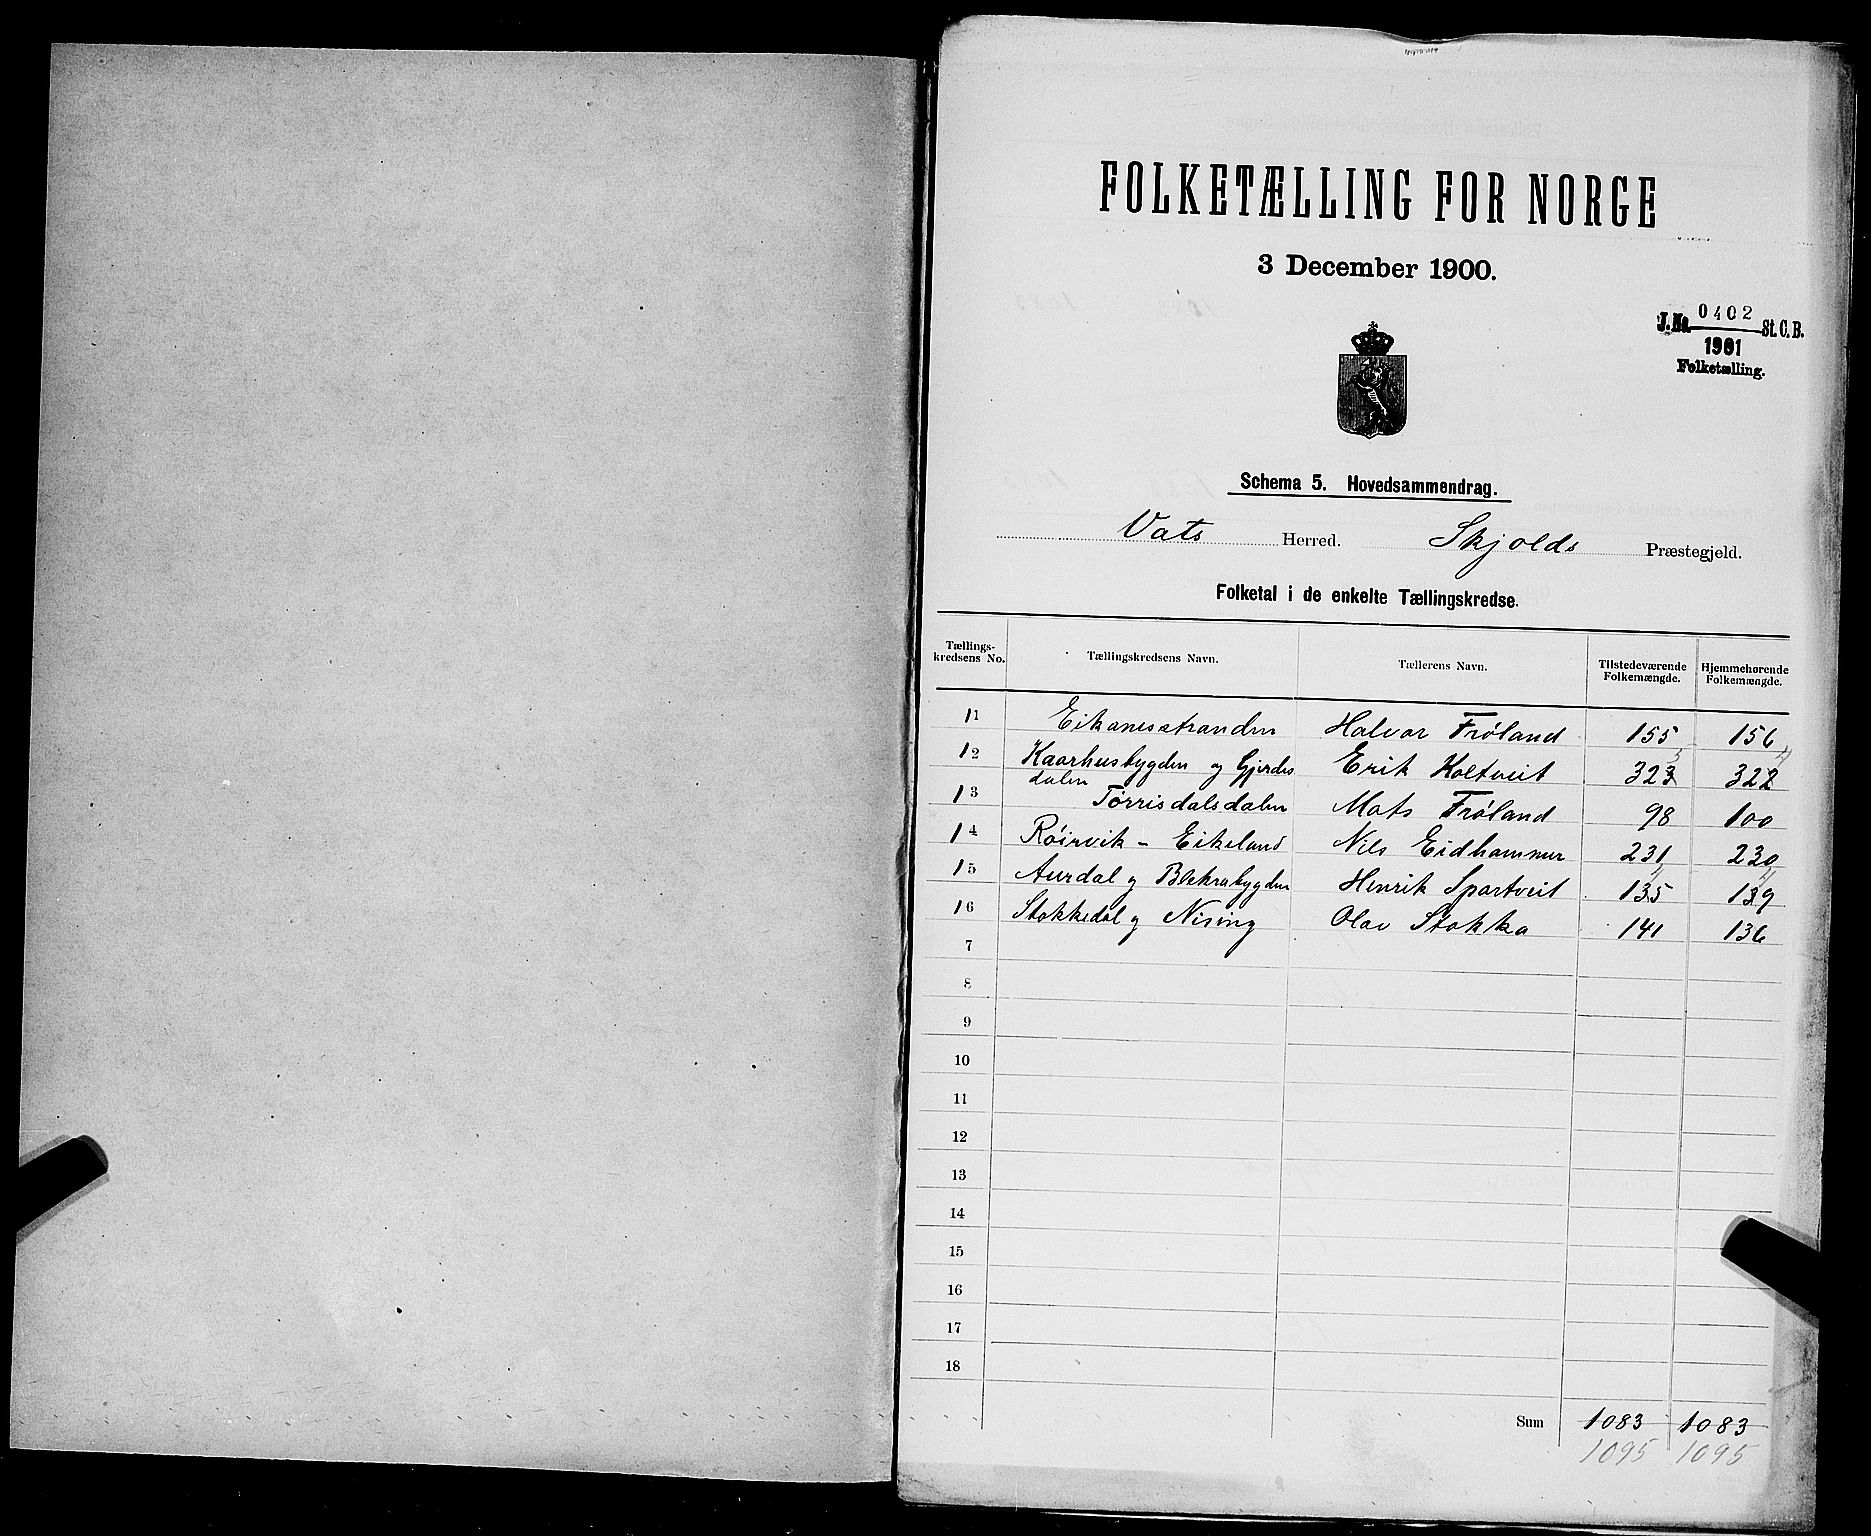 FOLKETÆLLING FOR NORGE
3 December 1900.
J.No. 0402 St. C. B.
1901
Folketælling.
Schema 5. Hovedsammendrag.
Vats Herred. Skjolds Præstegjeld.
Folketal i de enkelte Tællingskredse.
Tællings-kredsens No. Tællingskredsens Navn. Tællerens Navn. Tilstedeværende Folkemængde. Hjemmehørende Folkemængde.
1 Eikanesstranden Halvor Frøland 155 156
2 Kaarhusbygden og Gjerdesdalen Erik Koltveit 323 322
3 Tørrisdalsdalen Mats Frøland 98 100
4 Røirvik - Eikeland Nils Eidhammer 231 230
5 Aurdal og Blikrabygden Henrik Spartveit 135 139
6 Stokkedal og Nising Olav Stokka 141 136
7
8
9
10
11
12
13
14
15
16
17
18
Sum 1083 1083
1095 1095